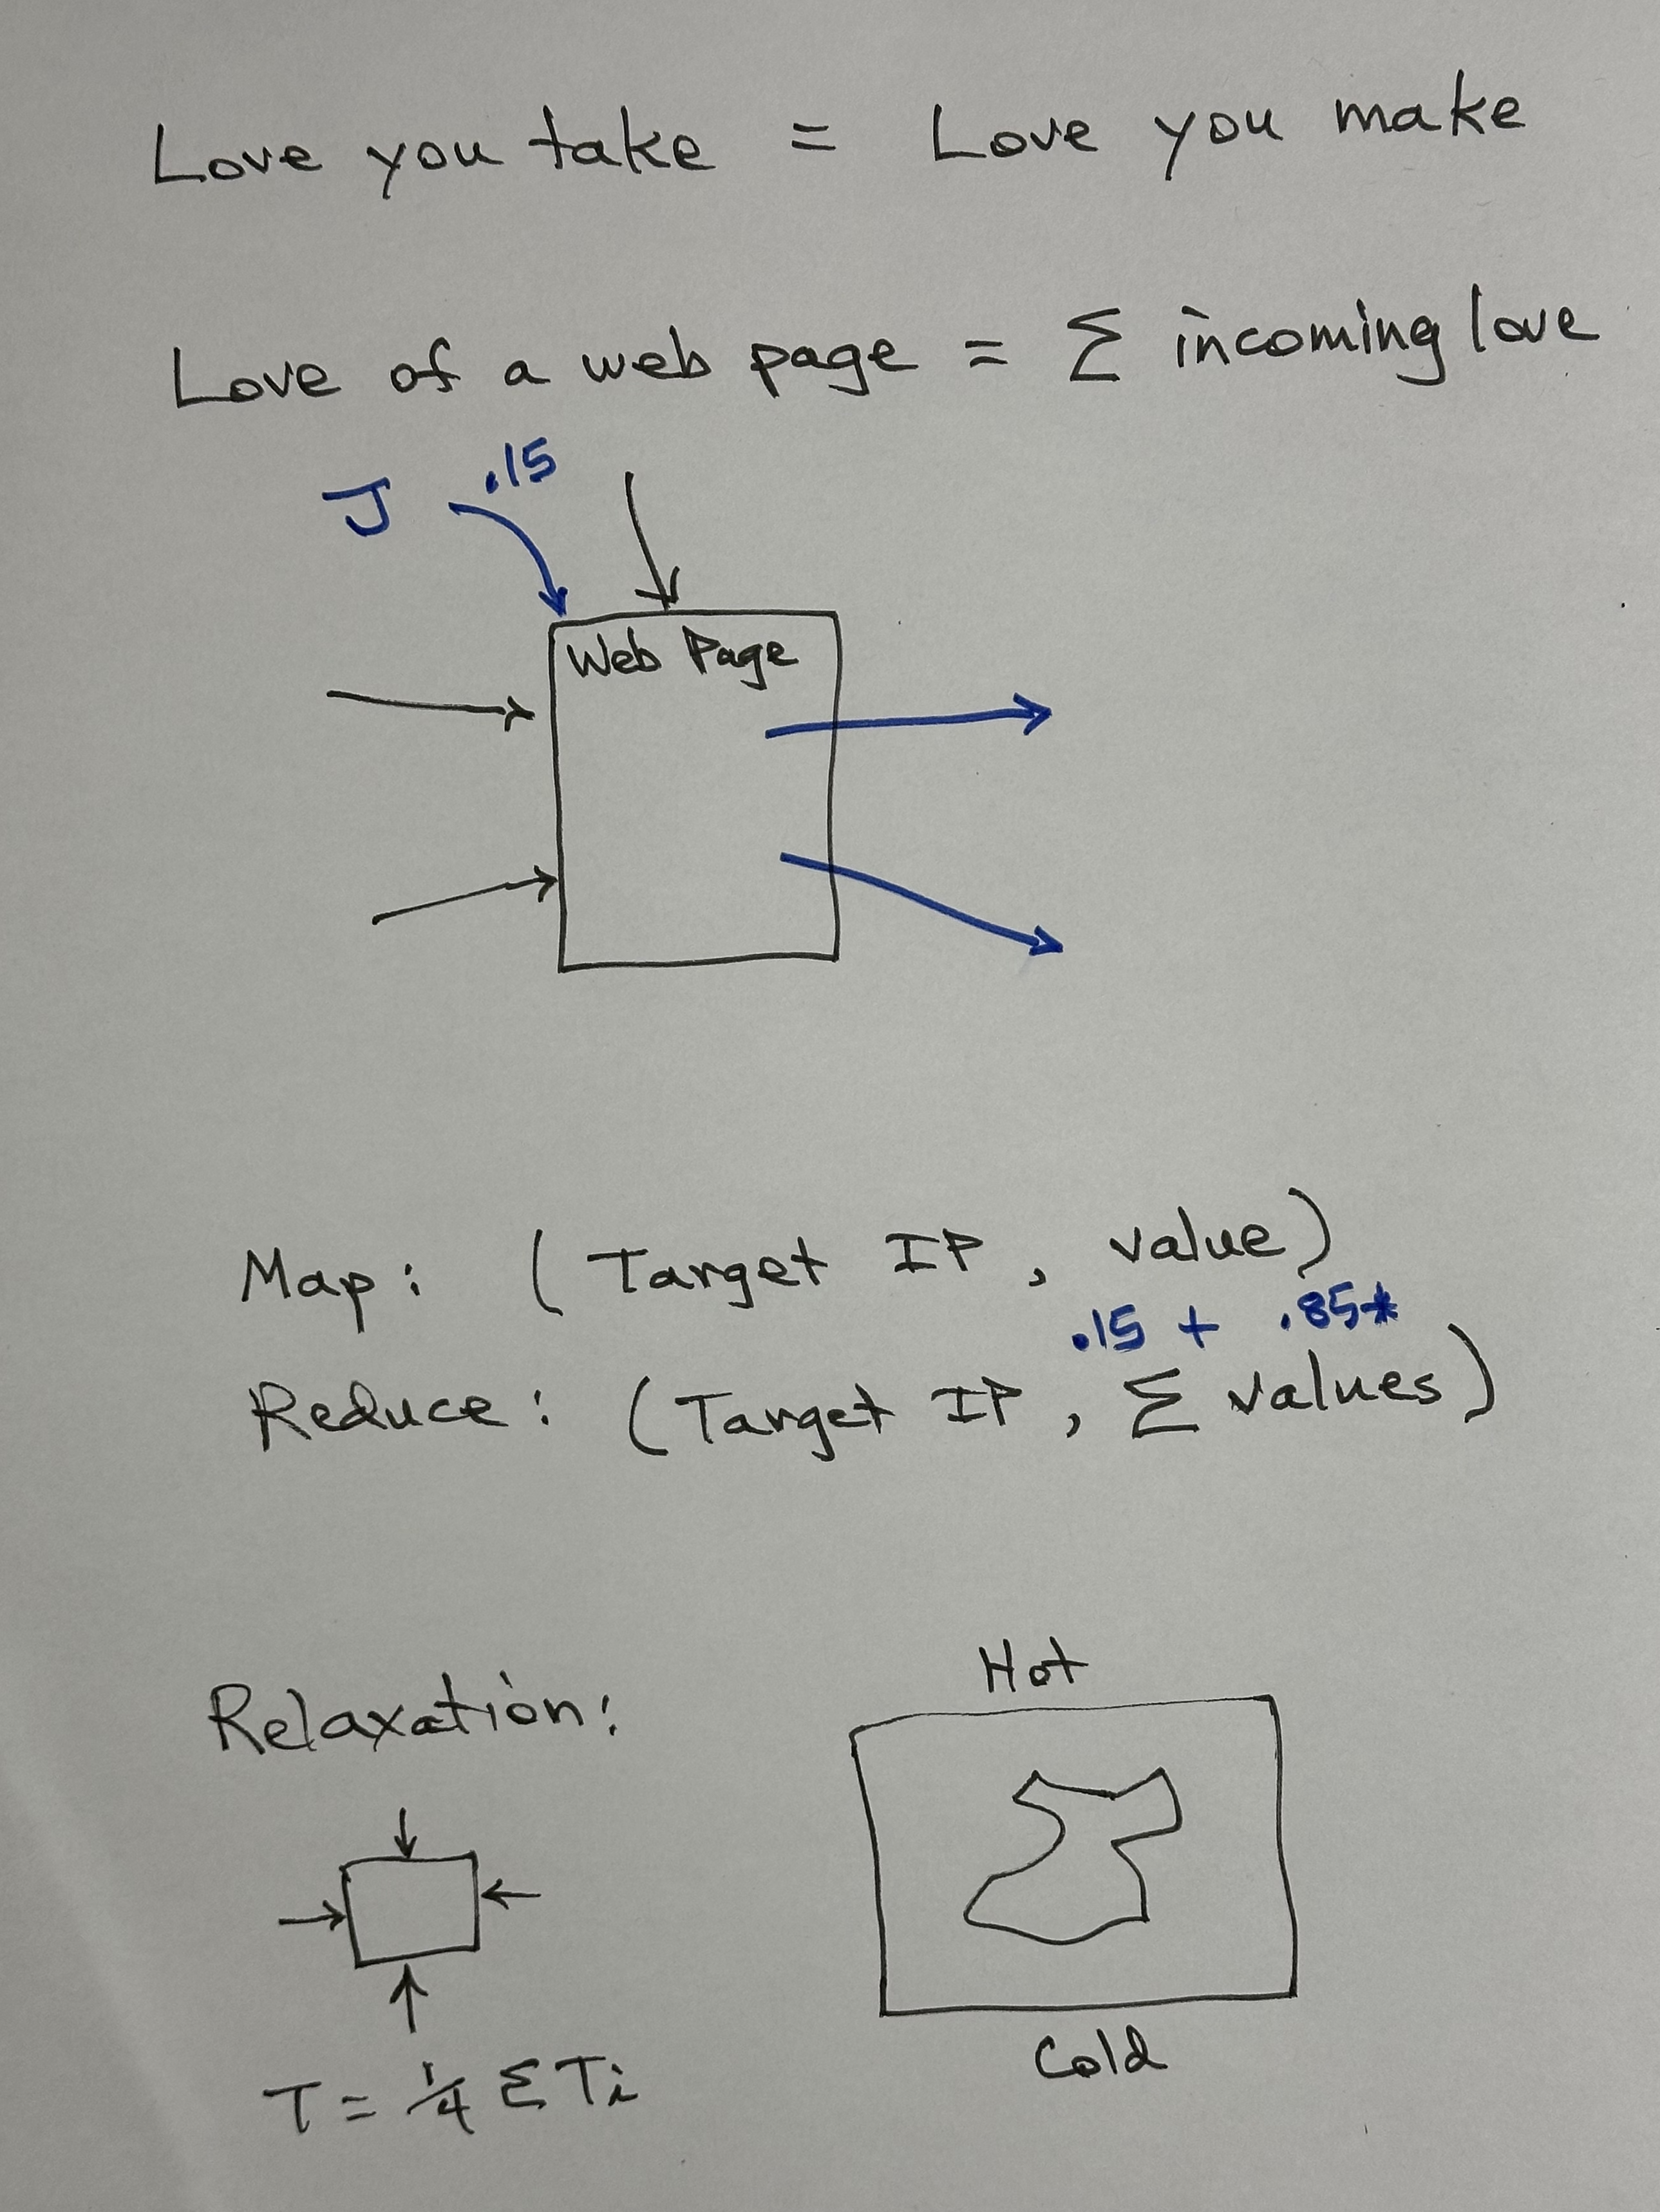 Love you take = Love you make
Love of a web page = Σ incoming love
J .15
Web Page
Map: (Target IP, value)
.15 + .85*
Reduce: (Target IP, Σ values)
Hot
Relaxation:
Cold
T = 1/4 Σ Ti